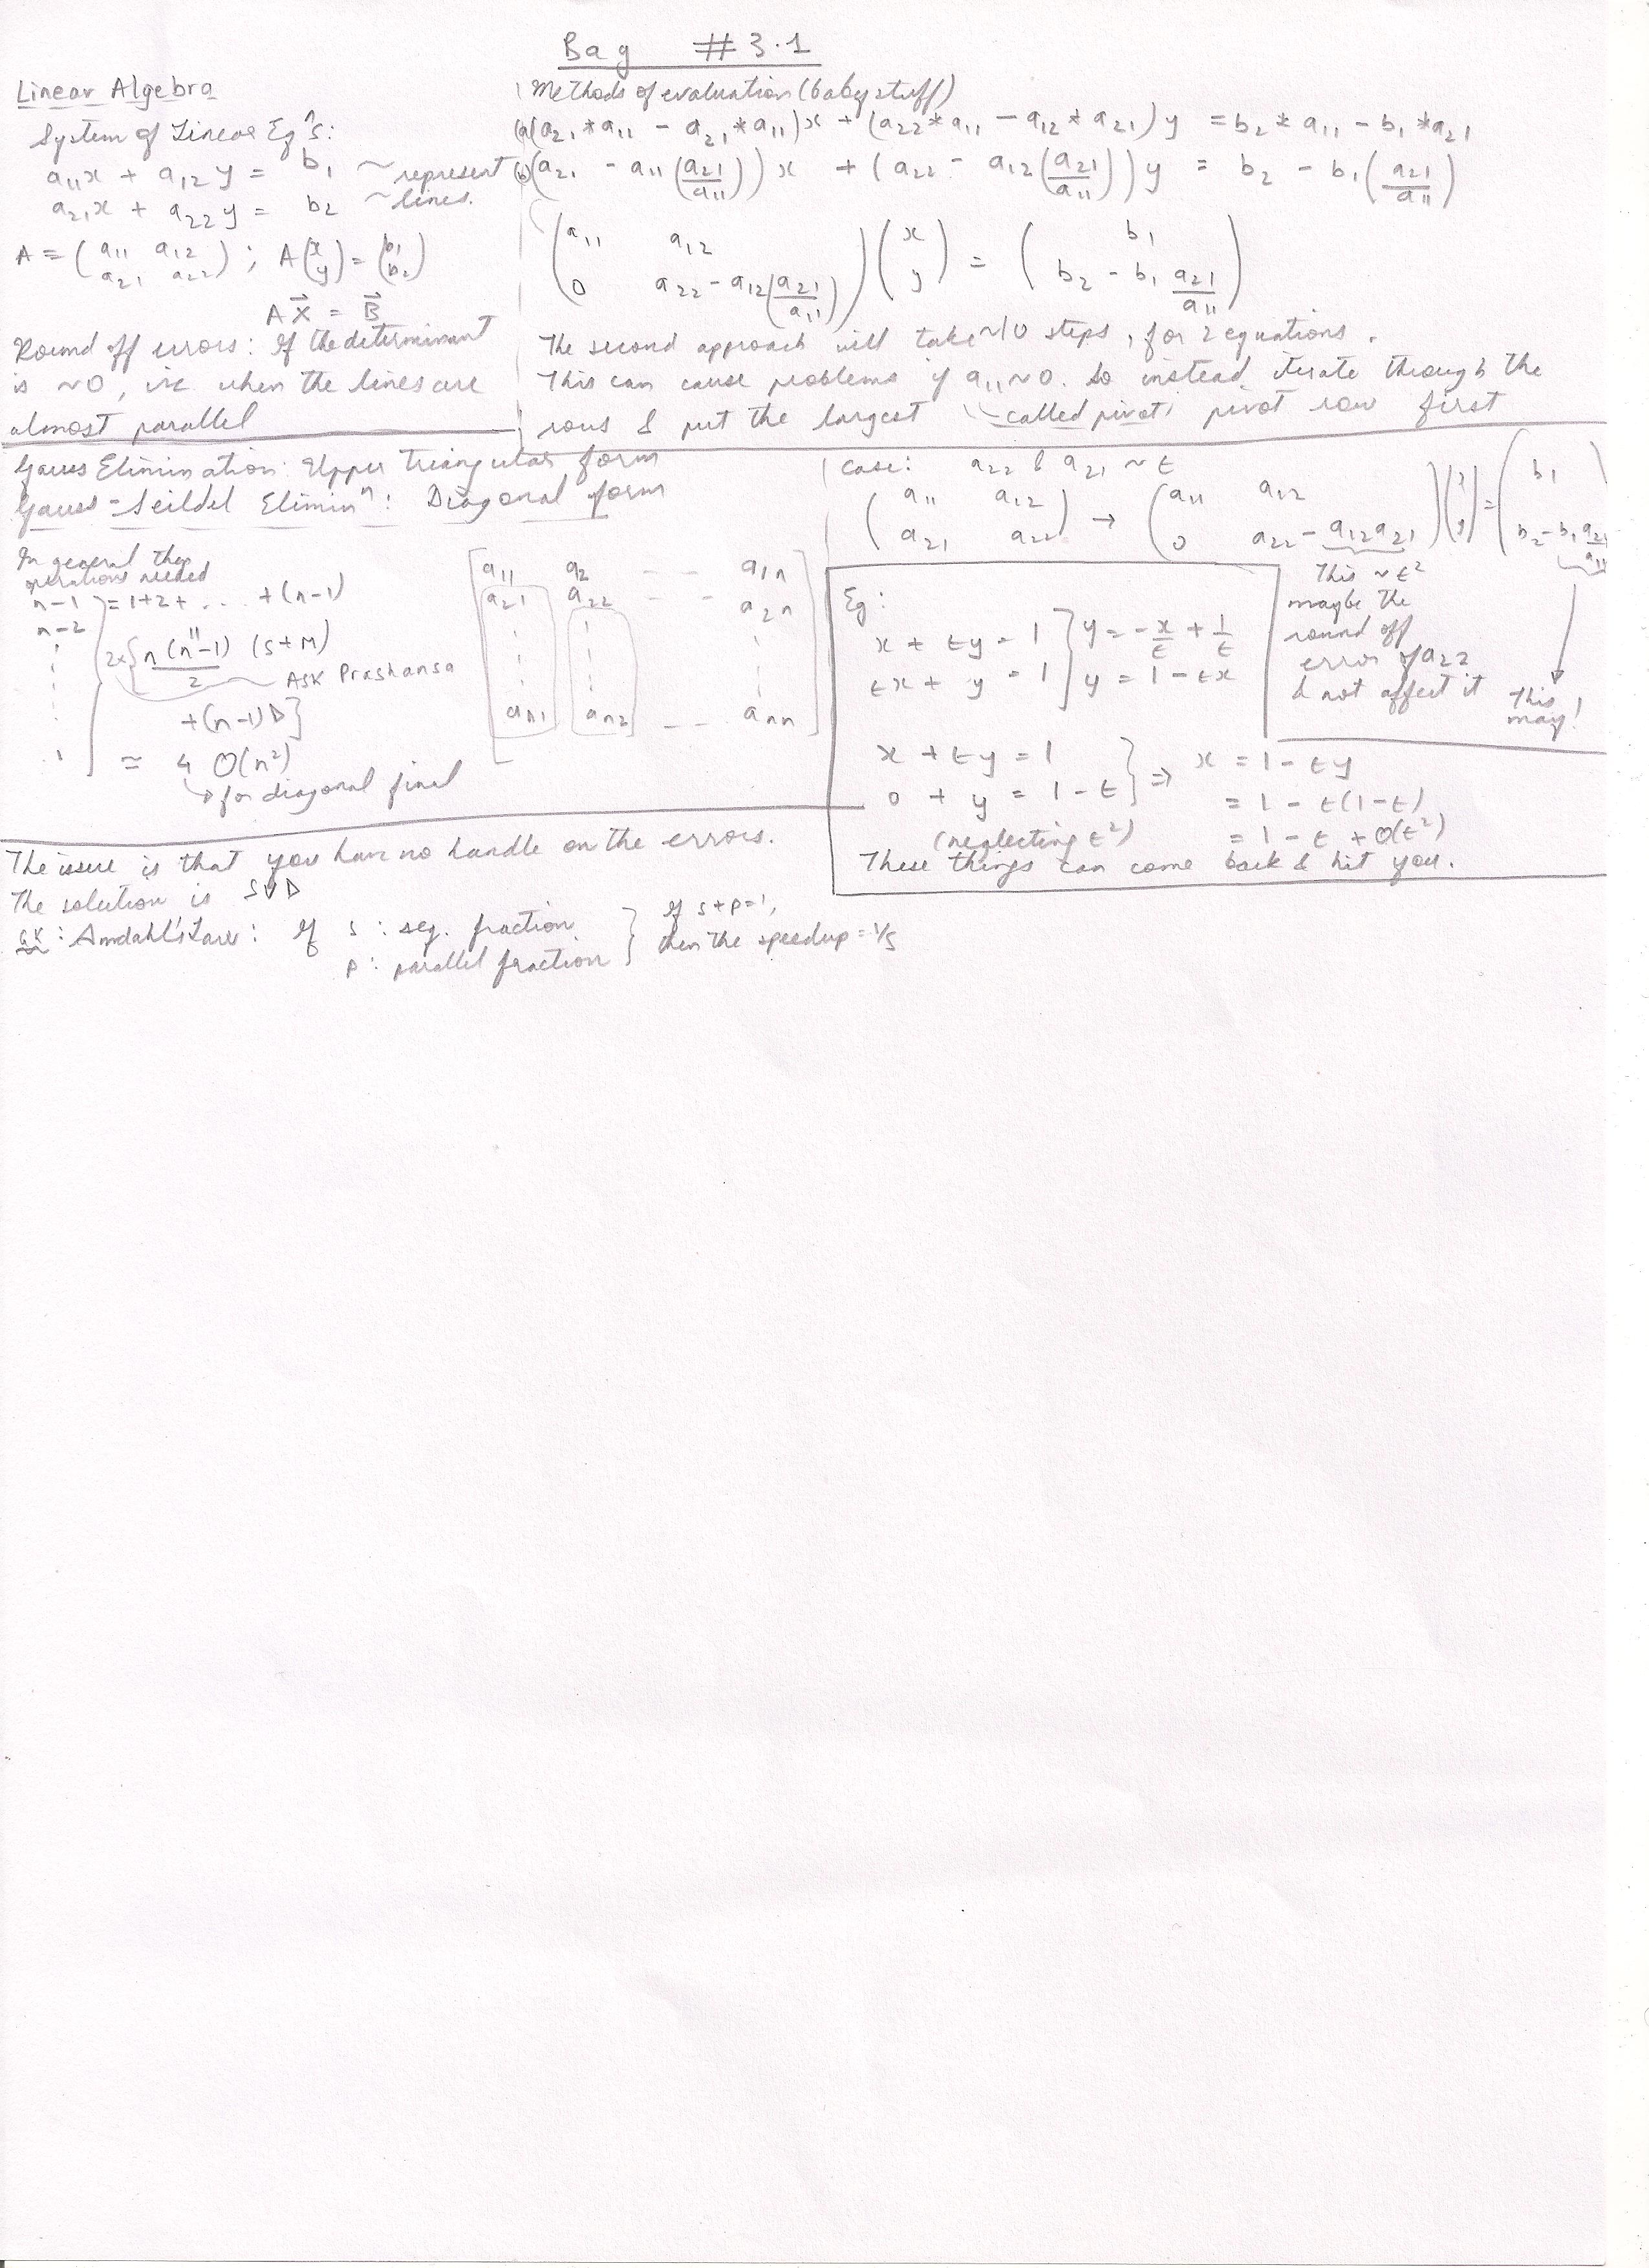 Bag #3.1
Linear Algebra
System of Linear Eqⁿs:
a₁₁x + a₁₂y = b₁ ~ represent
a₂₁x + a₂₂y = b₂ ~ lines.
A = (a₁₁ a₁₂ ; A(x = (b₁
a₂₁ a₂₂) y) b₂)
AX⃗ = B⃗
Round off errors: If the determinant
is ~0, ie when the lines are
almost parallel
Methods of evaluation (baby stuff)
(a) (a₂₁*a₁₁ - a₂₁*a₁₁)x + (a₂₂*a₁₁ - a₁₂*a₂₁)y = b₂*a₁₁ - b₁*a₂₁
(b) (a₂₁ - a₁₁(a₂₁/a₁₁))x + (a₂₂ - a₁₂(a₂₁/a₁₁))y = b₂ - b₁(a₂₁/a₁₁)
(a₁₁ a₁₂ (x = (b₁
0 a₂₂ - a₁₂(a₂₁/a₁₁)) y) b₂ - b₁ a₂₁/a₁₁)
The second approach will take ~10 steps, for 2 equations.
This can cause problems if a₁₁~0. So instead, iterate through the
rows & put the largest 'called pivot' pivot row first
Gauss Elimination: Upper triangular form
Gauss-Seildel Eliminⁿ: Diagonal form
In general the
operations needed
n-1 = 1+2+ . . . . +(n-1)
n-2 "
2×{n(n-1)/2 (S+M)
ASK Prashansa
+(n-1)D}
1
≈ 4 O(n²)
↳ for diagonal final
a₁₁ a₂ - - a₁ₙ
a₂₁ a₂₂ - - a₂ₙ
aₙ₁ aₙ₂ - - aₙₙ
case: a₂₂ & a₂₁ ~ ε
(a₁₁ a₁₂ → (a₁₁ a₁₂ = (b₁
a₂₁ a₂₂) 0 a₂₂ - a₁₂a₂₁) b₂ - b₁ a₂₁/a₁₁
This ~ ε²
maybe the
round off
error of a₂₂
& not affect it
This
may!
Eg:
x + εy = 1 } y = -x/ε + 1/ε
εx + y = 1 } y = 1 - εx
x + εy = 1 } ⇒ x = 1 - εy
0 + y = 1 - ε = 1 - ε(1-ε)
(neglecting ε²) = 1 - ε + O(ε²)
These things can come back & hit you.
The issue is that you have no handle on the errors.
The solution is SVD
GK: Amdahl's Law: If s : seq. fraction } If s+p=1,
p : parallel fraction } then the speedup = 1/s